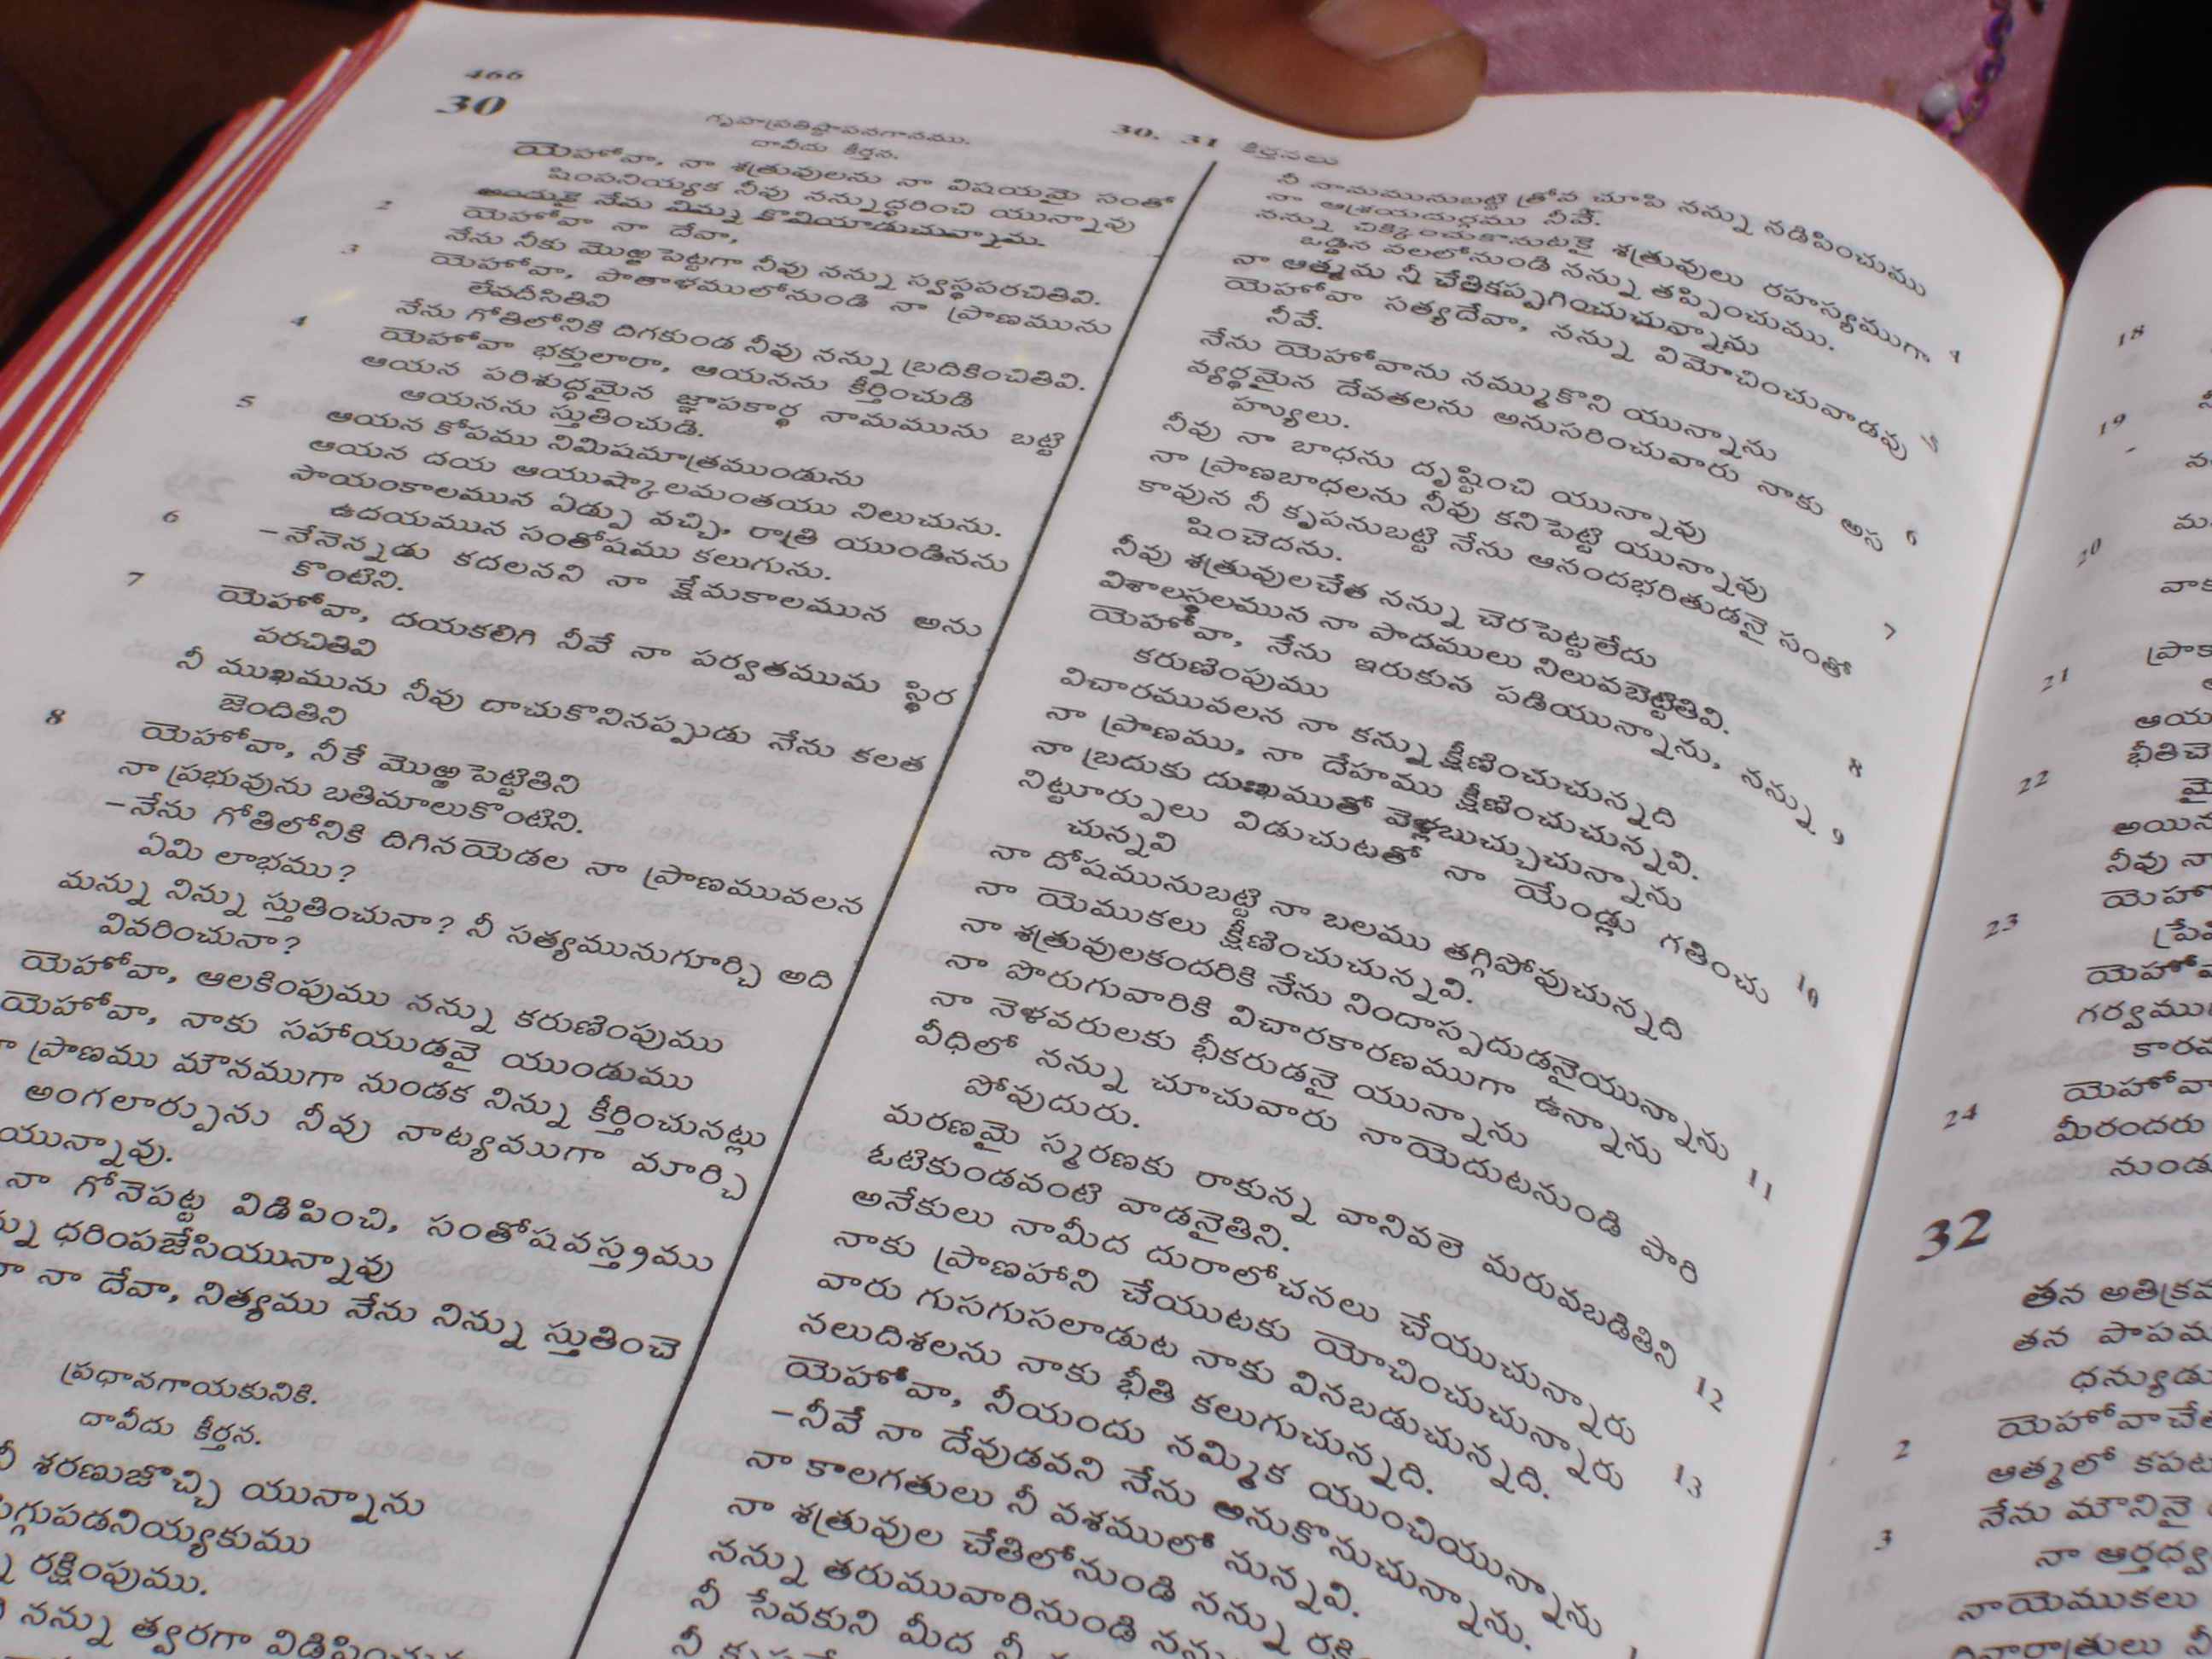 466
30. 31 కీర్తనలు
30
గృహప్రతిష్ఠాపనగానము.
దావీదు కీర్తన.
యెహోవా, నా శత్రువులను నా విషయమై సంతో
షింపనియ్యక నీవు నన్నుద్ధరించి యున్నావు
అందుకై నేను నిన్ను కొనియాడుచున్నాను.
2 యెహోవా నా దేవా,
నేను నీకు మొఱ్ఱపెట్టగా నీవు నన్ను స్వస్థపరచితివి.
3 యెహోవా, పాతాళములోనుండి నా ప్రాణమును
లేవదీసితివి
నేను గోతిలోనికి దిగకుండ నీవు నన్ను బ్రదికించితివి.
4 యెహోవా భక్తులారా, ఆయనను కీర్తించుడి
ఆయన పరిశుద్ధమైన జ్ఞాపకార్థ నామమును బట్టి
ఆయనను స్తుతించుడి.
5 ఆయన కోపము నిమిషమాత్రముండును
ఆయన దయ ఆయుష్కాలమంతయు నిలుచును.
సాయంకాలమున ఏడ్పు వచ్చి, రాత్రి యుండినను
ఉదయమున సంతోషము కలుగును.
6 –నేనెన్నడు కదలనని నా క్షేమకాలమున అను
కొంటిని.
7 యెహోవా, దయకలిగి నీవే నా పర్వతమును స్థిర
పరచితివి
నీ ముఖమును నీవు దాచుకొనినప్పుడు నేను కలత
జెందితిని
8 యెహోవా, నీకే మొఱ్ఱపెట్టితిని
నా ప్రభువును బతిమాలుకొంటిని.
–నేను గోతిలోనికి దిగినయెడల నా ప్రాణమువలన
ఏమి లాభము?
మన్ను నిన్ను స్తుతించునా? నీ సత్యమునుగూర్చి అది
వివరించునా?
యెహోవా, ఆలకింపుము నన్ను కరుణింపుము
యెహోవా, నాకు సహాయుడవై యుండుము
ప్రాణము మౌనముగా నుండక నిన్ను కీర్తించునట్లు
అంగలార్పును నీవు నాట్యముగా మార్చి
యున్నావు.
నా గోనెపట్ట విడిపించి, సంతోషవస్త్రము
ధరింపజేసియున్నావు
నా దేవా, నిత్యము నేను నిన్ను స్తుతించె
ప్రధానగాయకునికి.
దావీదు కీర్తన.
నీ శరణుజొచ్చి యున్నాను
సిగ్గుపడనియ్యకుము
రక్షింపుము.
నన్ను త్వరగా విడిపించుము
నీ నామమునుబట్టి త్రోవ చూపి నన్ను నడిపించుము
నా ఆశ్రయదుర్గము నీవే.
నన్ను చిక్కించుకొనుటకై శత్రువులు రహస్యముగా 4
ఒడ్డిన వలలోనుండి నన్ను తప్పించుము.
నా ఆత్మను నీ చేతికప్పగించుచున్నాను
యెహోవా సత్యదేవా, నన్ను విమోచించువాడవు 5
నీవే.
నేను యెహోవాను నమ్ముకొని యున్నాను
వ్యర్థమైన దేవతలను అనుసరించువారు నాకు అస 6
హ్యులు.
నీవు నా బాధను దృష్టించి యున్నావు
నా ప్రాణబాధలను నీవు కనిపెట్టి యున్నావు
కావున నీ కృపనుబట్టి నేను ఆనందభరితుడనై సంతో 7
షించెదను.
నీవు శత్రువులచేత నన్ను చెరపెట్టలేదు
విశాలస్థలమున నా పాదములు నిలువబెట్టితివి. 8
యెహోవా, నేను ఇరుకున పడియున్నాను, నన్ను 9
కరుణింపుము
విచారమువలన నా కన్ను క్షీణించుచున్నది
నా ప్రాణము, నా దేహము క్షీణించుచున్నవి.
నా బ్రదుకు దుఃఖముతో వెళ్లబుచ్చుచున్నాను
నిట్టూర్పులు విడుచుటతో నా యేండ్లు గతించు 10
చున్నవి
నా దోషమునుబట్టి నా బలము తగ్గిపోవుచున్నది
నా యెముకలు క్షీణించుచున్నవి.
నా శత్రువులకందరికి నేను నిందాస్పదుడనైయున్నాను 11
నా పొరుగువారికి విచారకారణముగా ఉన్నాను
నా నెళవరులకు భీకరుడనై యున్నాను
వీధిలో నన్ను చూచువారు నాయెదుటనుండి పారి
పోవుదురు.
మరణమై స్మరణకు రాకున్న వానివలె మరువబడితిని 12
ఓటికుండవంటి వాడనైతిని.
అనేకులు నామీద దురాలోచనలు చేయుచున్నారు
నాకు ప్రాణహాని చేయుటకు యోచించుచున్నారు 13
వారు గుసగుసలాడుట నాకు వినబడుచున్నది.
నలుదిశలను నాకు భీతి కలుగుచున్నది.
యెహోవా, నీయందు నమ్మిక యుంచియున్నాను
–నీవే నా దేవుడవని నేను అనుకొనుచున్నాను.
నా కాలగతులు నీ వశములో నున్నవి.
నా శత్రువుల చేతిలోనుండి నన్ను
నన్ను తరుమువారినుండి
నీ సేవకుని మీద నీ
18
19
20
21
22
భీతిచె
అయిన
నీవు నా
23
యెహోవా
గర్వము
24 యెహోవా
మీరందరు
నుండు
32
తన అతిక్రమ
తన పాపము
ధన్యుడు
2 యెహోవాచేత
ఆత్మలో కపట
3 నేను మౌనినై
నా ఆర్తధ్వ
నాయెముకలు